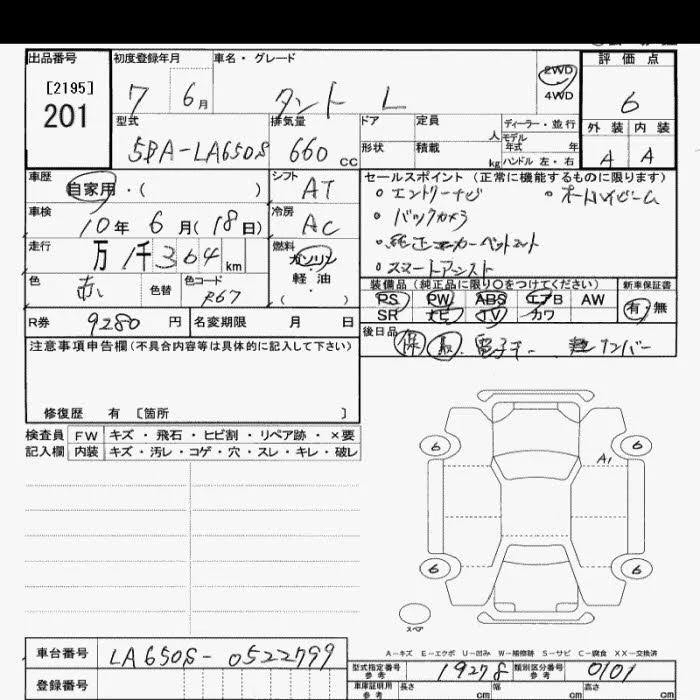 出品番号 初度登録年月 車名・グレード 評価点
[2195]
201
7 6月 タント L 2WD 4WD 6
型式 排気量 ドア 定員 人 ディーラー・並行 外装 内装
モデル年式 年
5BA-LA650S 660cc 形状 積載 kg ハンドル 左・右 A A
車歴 自家用・( ) シフト AT セールスポイント(正常に機能するものに限ります)
。エントリーナビ 。オートハイビーム
車検 10年6月(18日) 冷房 AC 。バックカメラ
走行 万1千364km 燃料 ガソリン 軽・油 。純正カーペットマット
。スマートアシスト
色 赤 色替 色コード R67 装備品(純正品に限り○をつけてください) 新車保証書
PS PW ABS エアB AW 有・無
SR ナビ TV カワ
R券 9280円 名変期限 月 日 後日品 保 取 電子キー
ナンバー
注意事項申告欄(不具合内容等は具体的に記入して下さい)
修復歴 有 [箇所 ]
検査員記入欄 FW キズ・飛石・ヒビ割・リペア跡・×要
内装 キズ・汚レ・コゲ・穴・スレ・キレ・破レ
6 A1 6
6 6
スペア
A-キズ E-エクボ U-凹み W-補修跡 S-サビ C-腐食 XX-交換済
車台番号 LA650S-0522799 型式指定番号 参考 19278 類別区分番号 参考 0101
登録番号 車庫証明用 参考 長さ cm 幅 cm 高さ cm